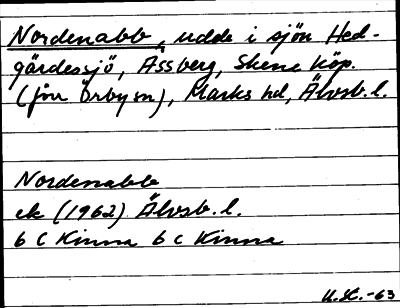 Nordenabb, udde i sjön Hed-
gärdessjö, Assberg, Skene köp.
(förr Örby sn), Marks hd, Älvsb. l.
Nordenabb
ek (1962) Älvsb. l.
6 C Kinna 6 c Kinna
-63